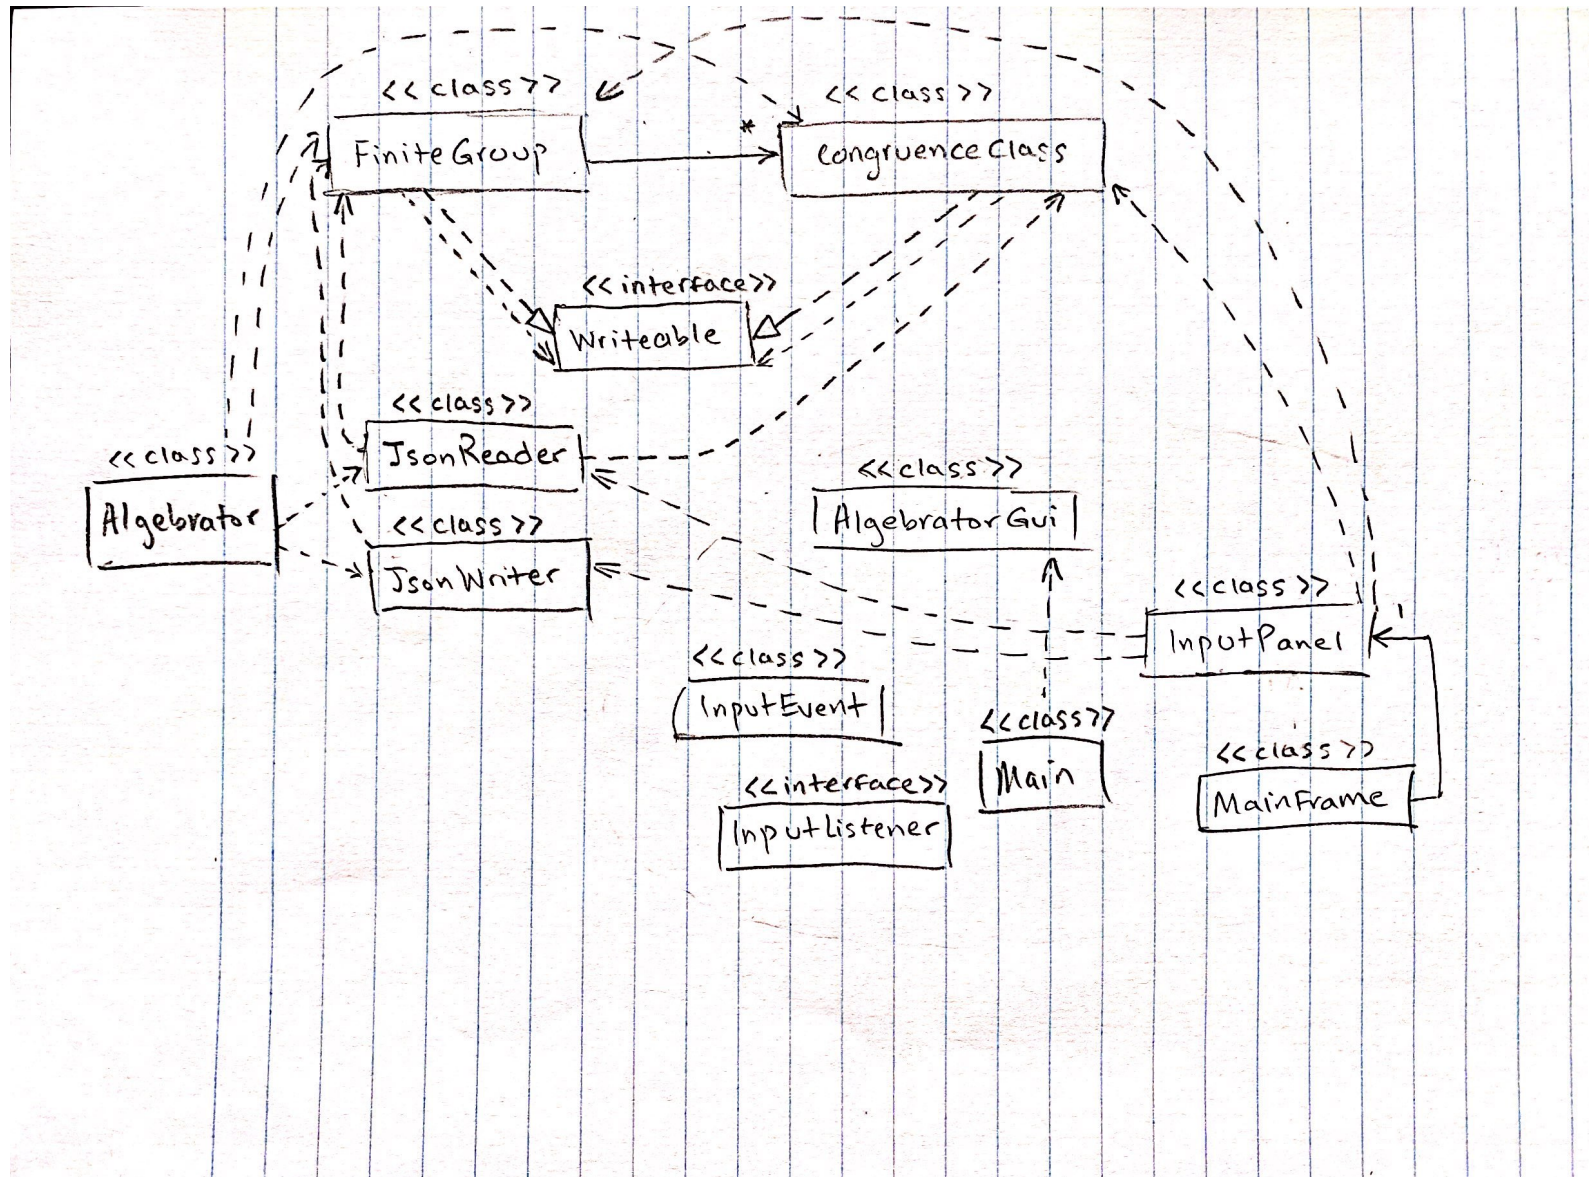 <<class>>
FiniteGroup
*
<<class>>
CongruenceClass
<<interface>>
Writeable
<<class>>
JsonReader
<<class>>
Algebrator
<<class>>
JsonWriter
<<class>>
AlgebratorGui
<<class>>
InputPanel
<<class>>
InputEvent
<<class>>
Main
<<class>>
MainFrame
<<interface>>
InputListener